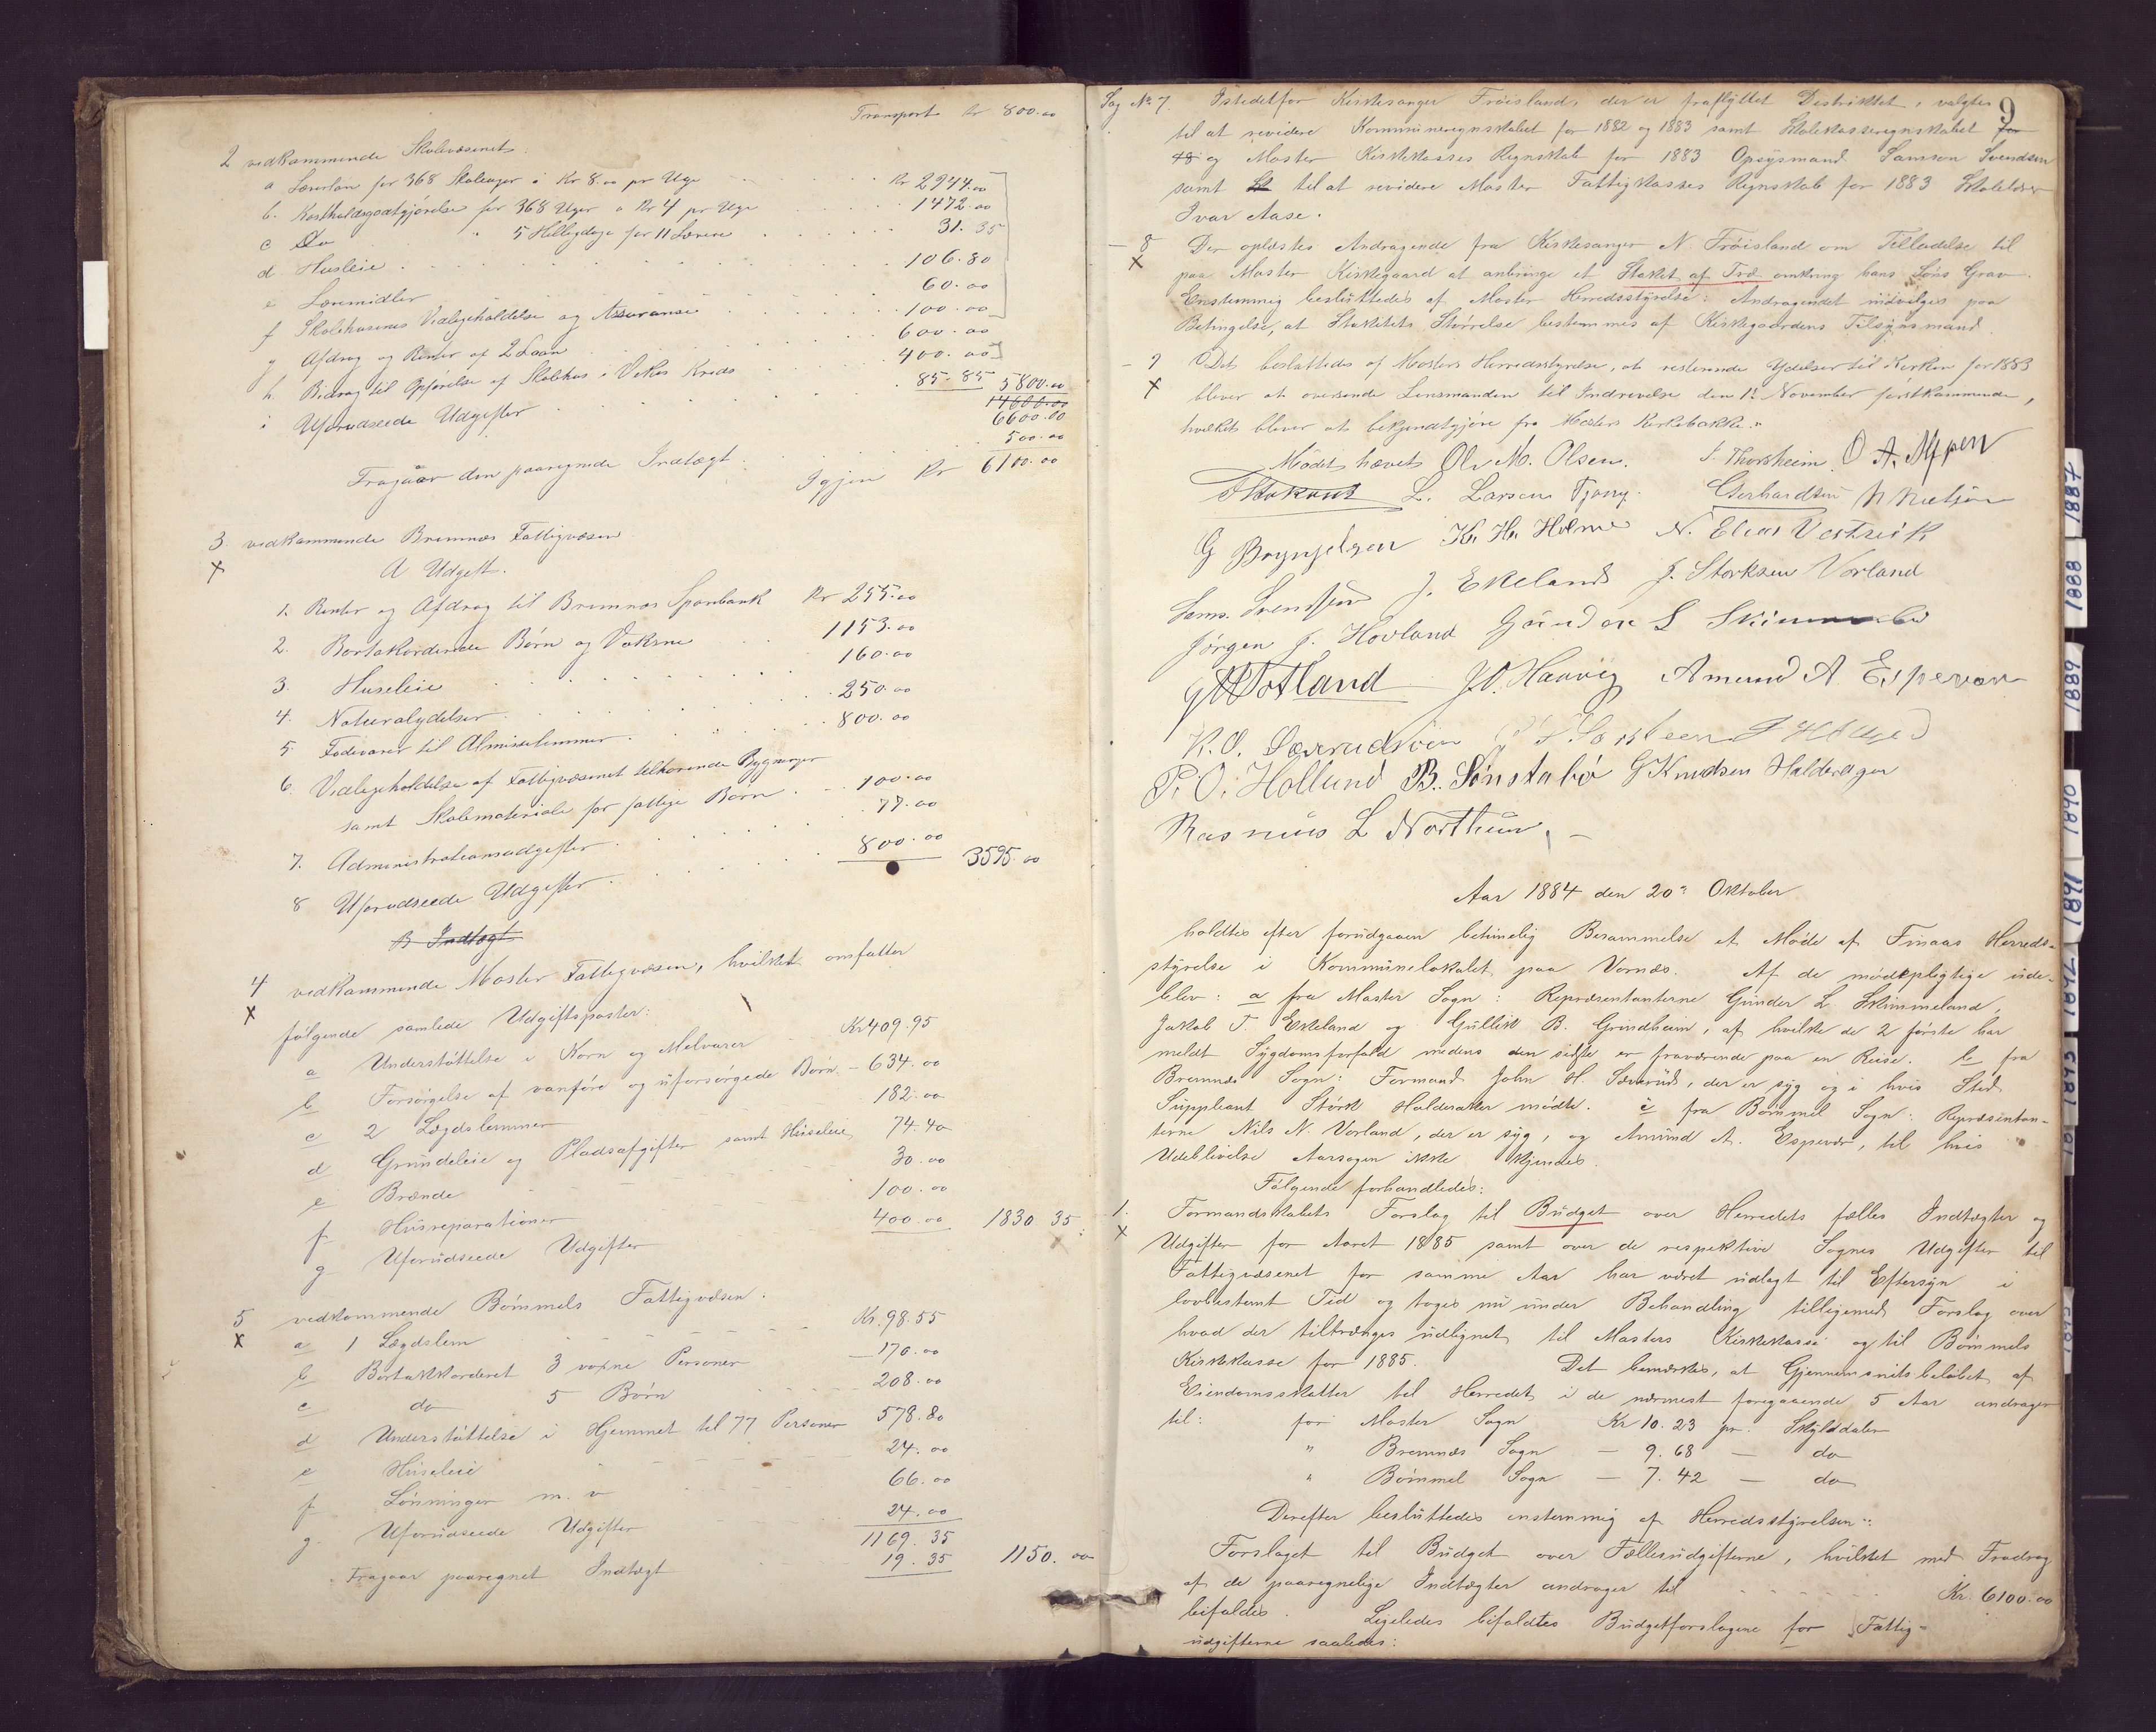 Transport Kr 800.00
2 vedkommende Skolevæsenet:
a Lærerløn for 368 Skoleuger à Kr 8.00 pr Uge Kr 2944.00
b. Kostholdsgodtgjørelse for 368 Uger à Kr 4 pr Uge 1472.00
c Do " 5 Helligdage for 11 Lærere 31.35
d Husleie 106.80
e Læremidler 60.00
f Skolehusenes Vedligeholdelse og Assurance 100.00
g Afdrag og Renter af 2 Laan 600.00
h. Bidrag til Opførelse af Skolehus i Vikse Kreds 400.00
i Uforudseede Udgifter 85.85 5800.00
6600.00
Fragaar den paaregnede Indtægt 500.00
Igjen Kr 6100.00
3 vedkommende Bremnes Fattigvæsen
X A Udgift.
1. Renter og Afdrag til Bremnes Sparebank Kr 255.00
2. Bortakkorderede Børn og Voksne 1153.00
3. Husleie 160.00
4. Naturalydelser 250.00
5 Fødevarer til Almisselemmer 800.00
6. Vedligeholdelse af Fattigvæsenet tilhørende Bygninger
samt Skolemateriale for fattige Børn 100.00
7. Administrationsudgifter 77.00
8 Uforudseede Udgifter 800.00 3595.00
B Indtægt
4 vedkommende Moster Fattigvæsen, hvilket omfatter
X følgende samlede Udgiftsposter:
a Understøttelse i Korn og Melvarer Kr 409.95
b Forsørgelse af vanføre og uforsørgede Børn - 634.00
c 2 Lægdslemmer 182.00
d Grundeleie og Pladsafgifter samt Husleie 74.40
e Brænde 30.00
f Husreparationer 100.00
g Uforudseede Udgifter 400.00 1830.35
5 vedkommende Bømmels Fattigvæsen.
X a 1 Lægdslem Kr. 98.55
b Bortakkorderet 3 voxne Personer — 170.00
c do 5 Børn 208.00
d Understøttelse i Hjemmet til 77 Personer 578.80
e Husleie 24.00
f Lønninger m. v 66.00
g. Uforudseede Udgifter 24.00
1169.35
Fragaar paaregnet Indtægt 19.35 1150.00
9
Sag No 7. Istedetfor Kirkesanger Frøisland, der er fraflyttet Distriktet, valgtes
til at revidere Kommuneregnskabet for 1882 og 1883 samt Skolekasseregnskabet for
48 og Moster Kirkekasses Regnskab for 1883 Opsysmand Samson Svendsen
samt til at revidere Moster Fattigkasses Regnskab for 1883 Skolelærer
Ivar Aase.
— 8 Der oplæstes Andragende fra Kirkesanger N. Frøisland om Tilladelse til
X paa Moster Kirkegaard at anbringe et Stakit af Træ omkring hans Søns Grav.
Enstemmig besluttedes af Moster Herredsstyrelse: Andragendet indvilges paa
Betingelse, at Stakitets Størrelse bestemmes af Kirkegaardens Tilsynsmand.
— 9 Det besluttedes af Mosters Herredsstyrelse, at resterende Ydelser til Kirken for 1883
X bliver at oversende Lensmanden til Inddrivelse den 1ste November førstkommende,
hvilket bliver at bekjendtgjøre fra Mosters Kirkebakke."
Mødet hævet. Ole M. Olsen. S. Thorsheim O A. Alfsen
L. Larsen Tjong. Gerhardtsen
G Brynjelsen K. H. Holme N. Elias Vestvik
Sams. Svendsen J. Ekeland J. Storksen Vorland
Jørgen J. Hovland Gunder L Skimmeland
Totland J.O. Haavig Amund A Espevær
K.O. Særvedsøen
P. O. Hollund B. Sønstabø G Knudsen Halderager
Rasmus L Northun. —
Aar 1884 den 20de Oktober
holdtes efter forudgaaen betimelig Berammelse et Møde af Finaas Herreds-
styrelse i Kommunelokalet paa Vornæs. Af de mødepligtige ude-
blev: a fra Moster Sogn: Repræsentanterne Gunder L. Skimmeland,
Jakob T. Ekeland og Gullik B. Grindheim, af hvilke de 2 første har
meldt Sygdomsforfald medens den sidste er fraværende paa en Reise. b fra
Bremnæs Sogn: Formand John H. Særvud, der er syg og i hvis Sted
Suppleant Størk Halderaker mødte. c fra Bømmel Sogn: Repræsentan-
terne Nils N. Vorland, der er syg, og Amund A. Espevær, til hvis
Udeblivelse Aarsagen ikke kjendes.
Følgende forhandledes:
1. Formandskabets Forslag til Budget over Herredets fælles Indtægter og
X Udgifter for Aaret 1885 samt over de respektive Sognes Udgifter til
Fattigvæsenet for samme Aar har været udlagt til Eftersyn i
lovbestemt Tid og toges nu under Behandling tilligemed Forslag over
hvad der tiltrænges udlignet til Mosters Kirkekasse og til Bømmels
Kirkekasse for 1885. Det bemærkes, at Gjennemsnitsbeløbet af
Eiendomsskatter til Herredet i de nærmest foregaaende 5 Aar andrager
til: for Moster Sogn Kr 10.23 pr. Skylddaler
" Bremnæs Sogn — 9.68 — do
" Bømmel Sogn — 7.42 — do
Derefter besluttedes enstemmig af Herredsstyrelsen:
Forslaget til Budget over Fællesudgifterne, hvilket med Fradrag
af de paaregnelige Indtægter andrager til Kr. 6100.00
bifaldes. Ligeledes bifaldtes Budgetforslagene for Fattig-
udgifterne saaledes:
1887
1888
1889
1890
1891
1892
1893